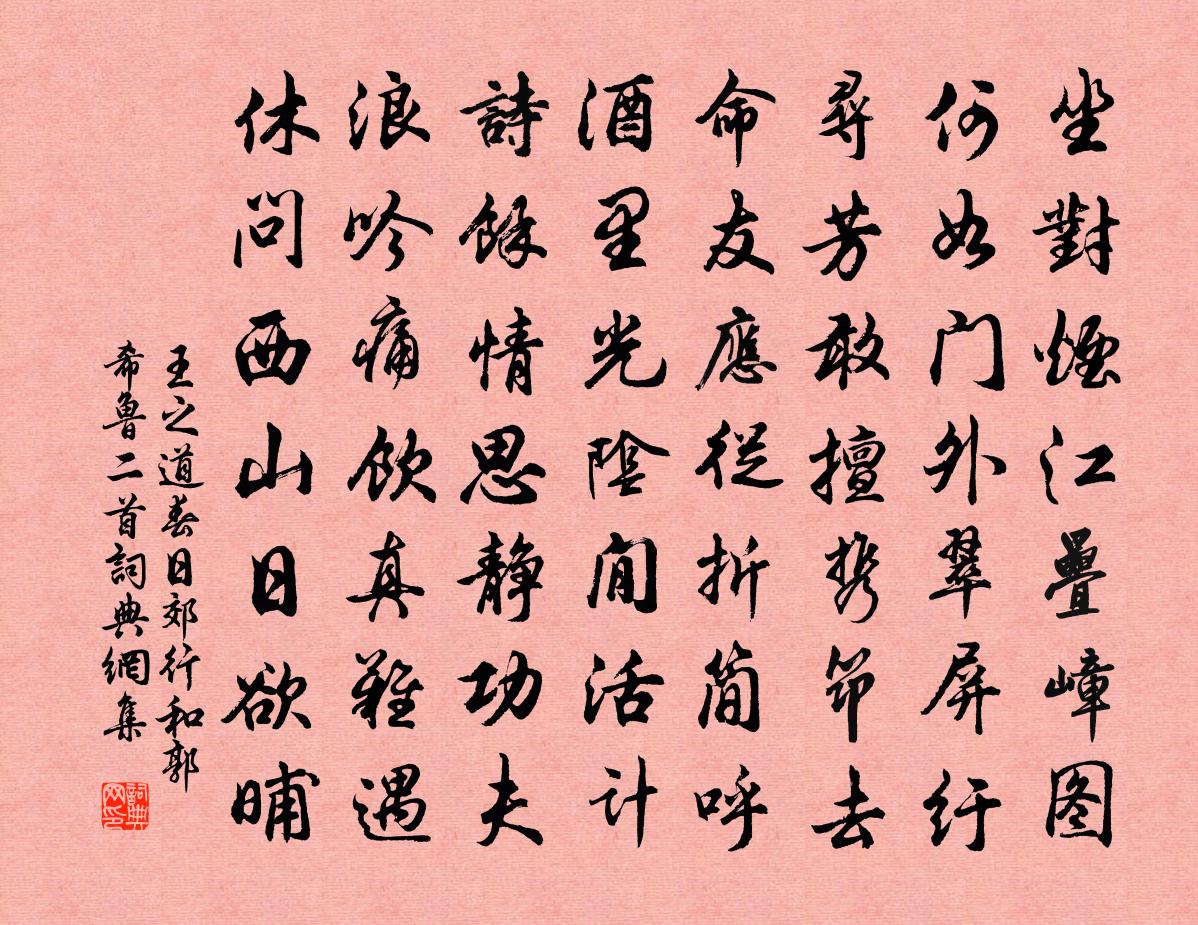 坐對煙江疊嶂图
何如门外翠屏纡
尋芳敢擅携筇去
命友應從折简呼
酒里光陰閒活计
詩餘情思静功夫
浪吟痛飲真難遇
休问西山日欲晡
王之道春日郊行和郭
希魯二首詞典網集
詞典网印